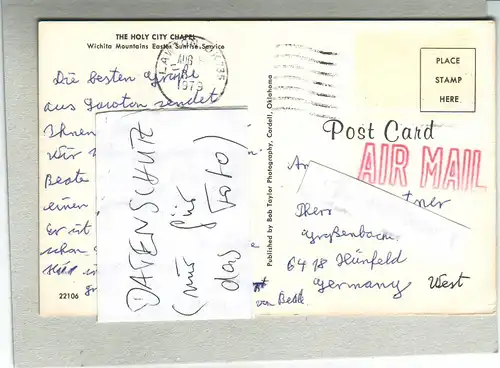 THE HOLY CITY CHAPEL
Wichita Mountains Easter Sunrise Service
LAWTON, OK 735
AUG
1973
Die besten Grüße
aus Lawton sendet
Ihnen
Wir
Beate
einen
Er ist
schon
22106
DATENSCHUTZ
(nur für
das Foto)
Published by Bob Taylor Photography, Cordell, Oklahoma
PLACE
STAMP
HERE
Post Card
AIR MAIL
An
tner
Großenbach
6418 Hünfeld
Germany West
von Beate